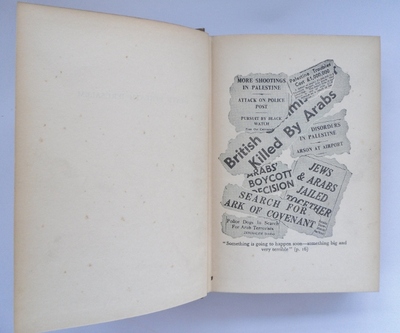 MORE SHOOTINGS
IN PALESTINE
ATTACK ON POLICE
POST
PURSUIT BY BLACK
WATCH
Palestine Troubles
Cost £1,500,000
British
Killed By Arabs
DISORDERS
IN PALESTINE
ARSON AT AIRPORT
ARABS'
BOYCOTT
DECISION
JEWS
& ARABS
JAILED
TOGETHER
SEARCH FOR
ARK OF COVENANT
Police Dogs In Search
For Arab Terrorists
"Something is going to happen soon—something big and
very terrible" (p. 16)